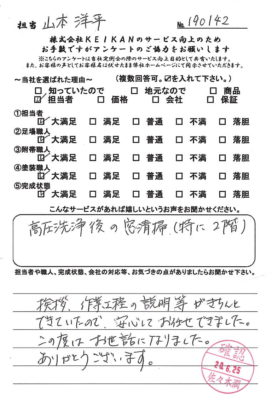 担当 山本 洋平 No. 190142
株式会社KEIKANのサービス向上のため
お手数ですがアンケートのご協力をお願いします
※こちらのアンケートは自社定例会の際のサービス向上目的として共有いたします。
また、お客様の声としてお客様名は伏せたまま弊社ホームページにて掲示させていただきます。
～当社を選ばれた理由～ (複数回答可。☑を入れて下さい。)
□ 知っていたので □ 地元なので □ 商品
☑ 担当者 □ 価格 □ 会社 □ 保証
①担当者
☑ 大満足 □ 満足 □ 普通 □ 不満 □ 落胆
②足場職人
☑ 大満足 □ 満足 □ 普通 □ 不満 □ 落胆
③附帯職人
☑ 大満足 □ 満足 □ 普通 □ 不満 □ 落胆
④塗装職人
☑ 大満足 □ 満足 □ 普通 □ 不満 □ 落胆
⑤完成状態
☑ 大満足 □ 満足 □ 普通 □ 不満 □ 落胆
こんなサービスがあれば嬉しいというお声をお聞かせください。
高圧洗浄後の窓清掃(特に2階)
担当者や職人、完成状態、会社の対応等、お気づきの点がありましたらお聞かせ下さい。
挨拶、作業工程の説明等がきちんと
できていたので、安心してお任せできました。
この度はお世話になりました。
ありがとうございます。
確認
20.6.25
佐々木